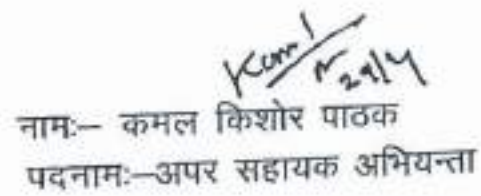 29/4
नामः– कमल किशोर पाठक
पदनामः–अपर सहायक अभियन्ता